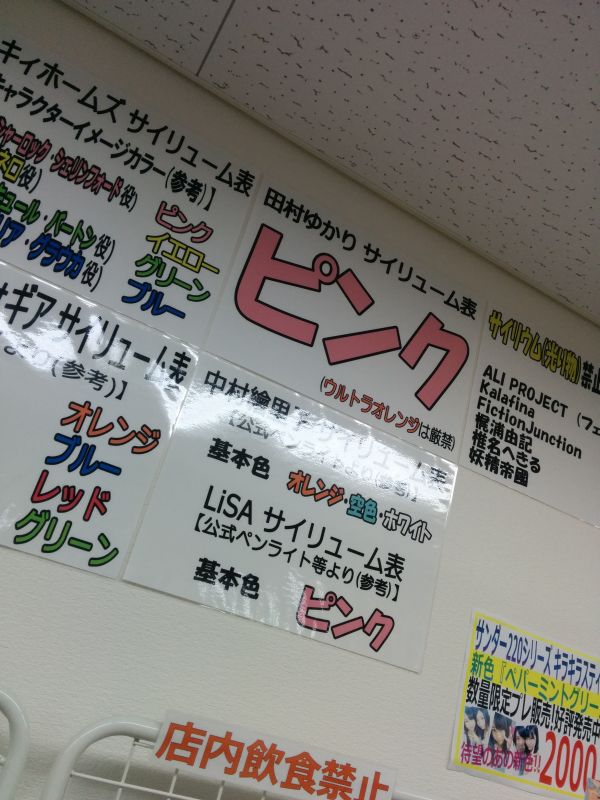 キィホームズ サイリューム表
キャラクターイメージカラー(参考)】
シャーロック・シェリンフォード役) ピンク
ネロ役) イエロー
キュール・バートン役) グリーン
リア・グラウカ役) ブルー
田村ゆかり サイリューム表
ピンク
(ウルトラオレンジは厳禁)
サイリウム(光り物)禁止
ALI PROJECT (フェ
Kalafina
FictionJunction
梶浦由記
椎名へきる
妖精帝國
ギア サイリューム表
より(参考)】
オレンジ
ブルー
レッド
グリーン
中村繪里子 サイリューム表
【公式ペンライトより(参考)】
基本色 オレンジ・空色・ホワイト
LiSA サイリューム表
【公式ペンライト等より(参考)】
基本色 ピンク
サンダー220シリーズ キラキラスティ
新色『ペパーミントグリー
数量限定プレ販売!好評発売中
待望のあの新色!! 2000
店内飲食禁止